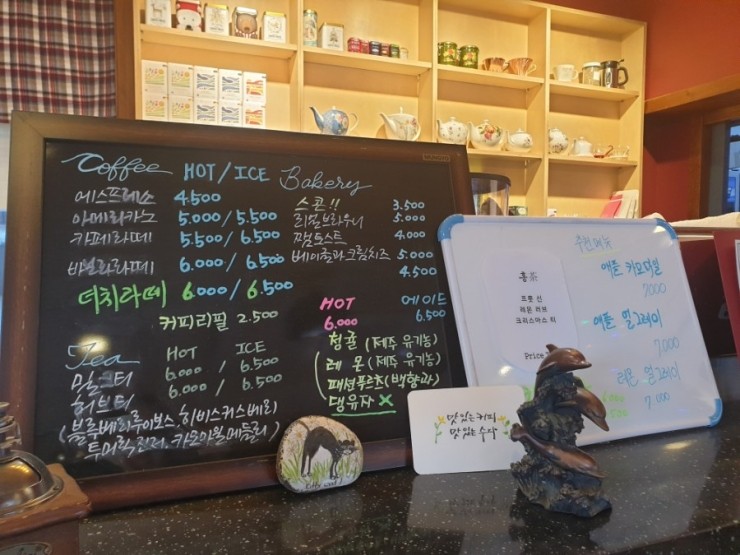 Coffee HOT / ICE
에스프레소 4.500
아메리카노 5.000 / 5.500
카페라떼 5.500 / 6.500
바닐라라떼 6.000 / 6.500
더치라떼 6.000 / 6.500
커피리필 2.500
Tea HOT ICE
밀크티 6.000 / 6.500
허브티 6.000 / 6.500
(블루베리루이보스.히비스커스베리
투머릭진저.카모마일메들리)
Bakery
스콘!! 3.500
리얼브라우니 5.000
잼토스트 4.000
베이글과크림치즈 5.000
4.500
HOT 에이드
6.000 6.500
청귤 (제주 유기농)
레몬 (제주 유기농)
패션푸르츠 (백향과)
댕유자 X
Kitty
맛있는 커피
맛있는 수다
추천메뉴
홍茶
트롯 신
레몬 러브
크리스마스 티
Price
애플 카모마일
7000
애플 얼그레이
7,000
레몬 얼그레이
7000